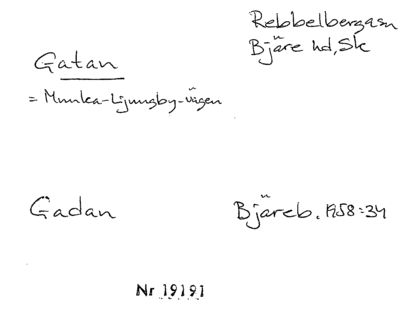 Rebbelbergasn
Bjäre hd, Sk
Gatan
= Munka-Ljungby-vägen
Gadan
Bjäreb. 1958:34
Nr 19191